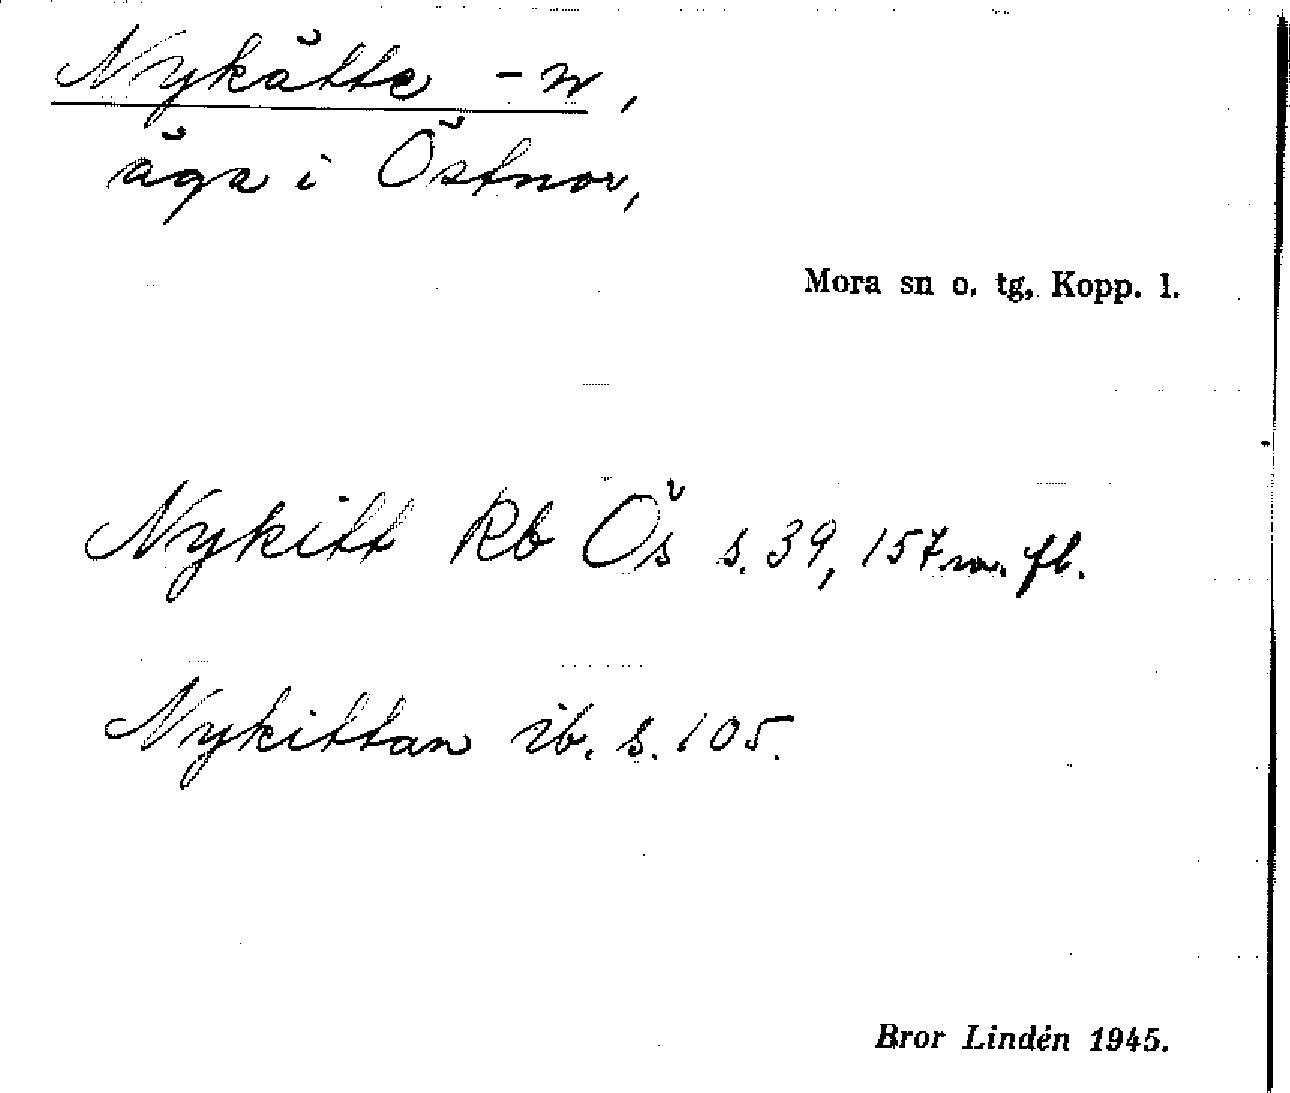 Nykätte -n,
äga i Östnor,
Mora sn o. tg, Kopp. l.
Nykitt Rb Ös s. 39, 157 m. fl.
Nykittan ib. s. 105.
Bror Lindén 1945.